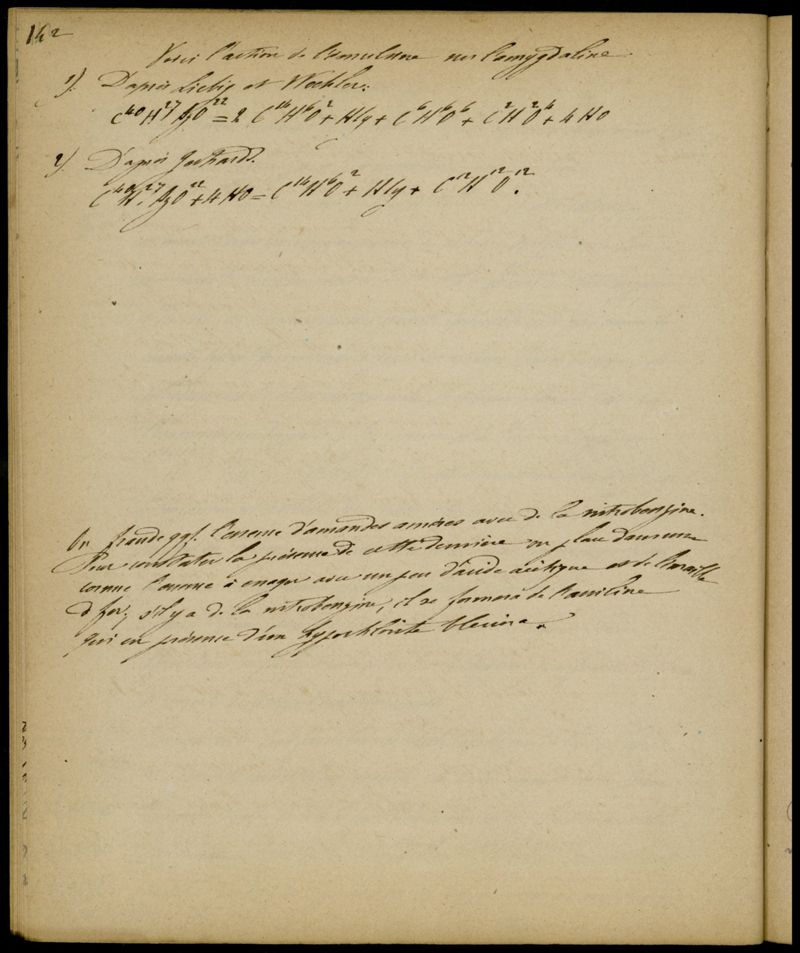 142
Voici l'action de l'émulsine sur l'amygdaline
1). D'après Liebig et Woehler:
C⁴⁰H²⁷AzO²² = 2 C¹⁴H⁶O² + HCy + C⁶H⁶O⁶ + C²H²O⁴ + 4 HO
2). D'après
C⁴⁰H²⁷AzO²² + 4 HO = C¹⁴H⁶O² + HCy + C¹²H¹²O¹².
On fraude qqf. l'essence d'amandes amères avec de la nitrobenzine.
Pour constater la présence de cette dernière on place dans une
cornue l'essence à essayer avec un peu d'acide acétique et de limaille
d fer; s'il y a de la nitrobenzine, il se formera de l'aniline
qui en présence d'un hypochlorite bleuira.